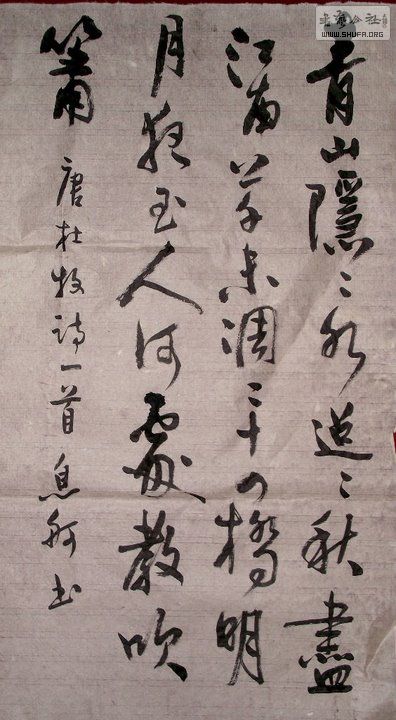 青山隱〻水迢〻秋盡
江南草未凋二十四橋明
月夜玉人何處教吹
簫
唐杜牧詩一首 息舸书
WWW.SHUFA.ORG